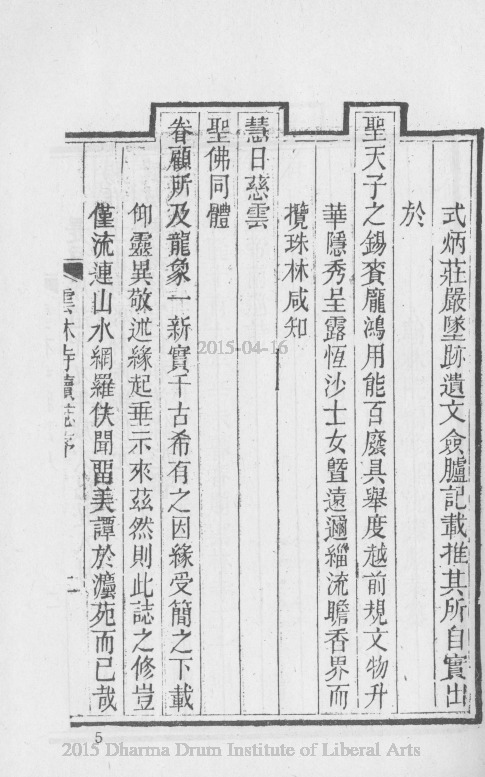 式炳莊嚴墜跡遺文僉臚記載推其所自實出
於
聖天子之錫賚龐鴻用能百廢具舉度越前規文物升
華隱秀呈露恆沙士女曁遠邇緇流瞻香界而
攬珠林咸知
慧日慈雲
聖佛同體
眷顧所及龍象一新實千古希有之因緣受簡之下載
仰靈異敬述緣起垂示來茲然則此誌之修豈
僅流連山水網羅佚聞畱美譚於灋苑而已哉
雲林寺續志序
二
5
2015-04-16
2015 Dharma Drum Institute of Liberal Arts